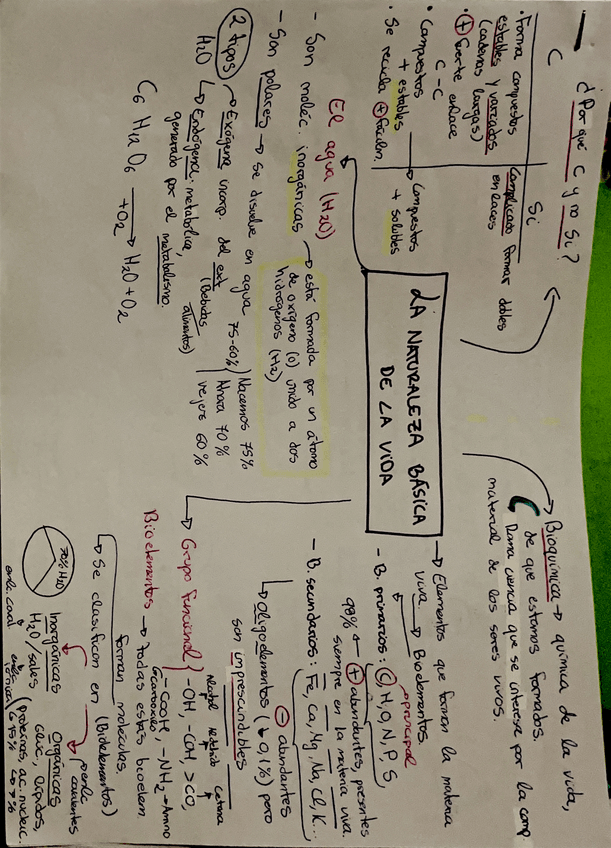 ¿Por qué C y no Si?
C
Si
· Forma compuestos
estables y variados
(cadenas largas)
· + fuerte enlace
C - C
· Compuestos
+ estables
· Se recicla + fácilm.
Complicado formar dobles
enlaces
Compuestos
+ solubles
LA NATURALEZA BÁSICA
DE LA VIDA
El agua (H2O)
- Son moléc. inorgánicas → está formada por un átomo
de oxígeno (O) unido a dos
hidrógenos (H2)
- Son polares → se disuelve en agua
75-60%
Nacemos 75%
Ahora 70%
vejers 60%
2 tipos
H2O
Exógena: incorp. del ext
(Bebidas
alimentos)
Endógena: metabólica,
generado por el metabolismo.
C6 H12 O6 + O2 → H2O + O2
Bioquímica → química de la vida,
de que estamos formados.
Rama ciencia que se interesa por la comp.
material de los seres vivos.
→ Elementos que forman la materia
viva. → Bioelementos.
principal
- B. primarios: C, H, O, N, P, S,
98% + abundantes, presentes
siempre en la materia viva.
- B. secundarios: Fe, Ca, Mg, Na, Cl, K...
- abundantes
→ Oligoelementos (↓ 0,1%) pero
son imprescindibles
→ Grupo Funcional
-OH, -CH, >CO,
cetona
-COOH, -NH2 → Amino
Bioelementos → todas estas bioelem.
forman moléculas
(Biolelementos)
→ Se clasifican en
70% H2O
Inorgánicas
H2O / sales
Orgánicas
Gluc., lípidos,
(proteínas, ac. nucleic.